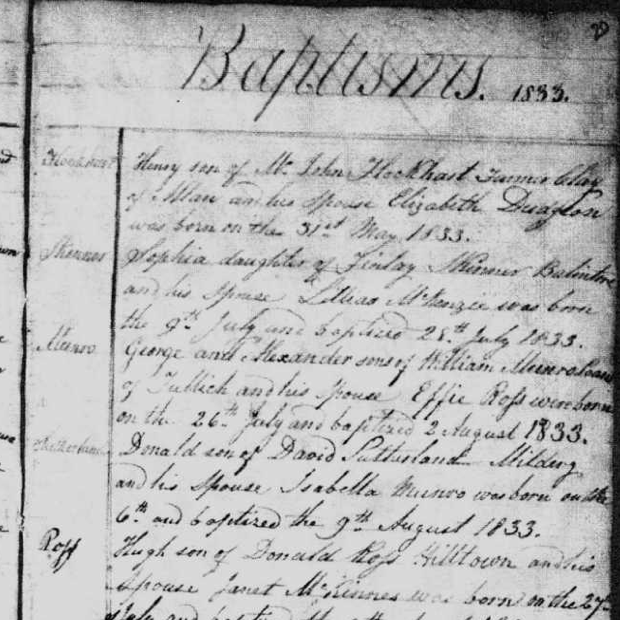 Baptisms. 1833.
Henry son of Mr. John Flockhart Farmer Clay
of Allan and his Spouse Elizabeth Dudgeon
was born on the 31st May 1833.
Skinner Sophia daughter of Finlay Skinner Balintore
and his Spouse Lillias McKenzie was born
the 9th July and baptized 28th July 1833.
Munro George and Alexander sons of William Munro
of Tullich and his Spouse Effie Ross were born
on the 26th July and baptized 2 August 1833.
Sutherland Donald son of David Sutherland Milderg
and his Spouse Isabella Munro was born on the
6th and baptized the 9th August 1833.
Ross Hugh son of Donald Ross Hilltown and his
Spouse Janet McKinnes was born on the 27th
July and